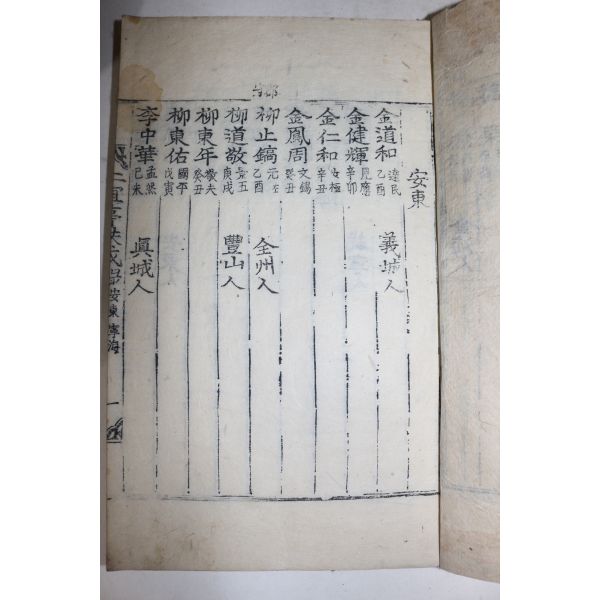 安東
金道和 達民 乙酉 義城人
金健輝 見應 辛卯
金仁和 極 辛丑
金鳳周 文錫 癸丑
柳止鎬 元佐 乙酉 全州人
柳道敬 五 庚戌 豐山人
柳東年 夫 癸丑
柳東佑 國平 戊寅
李中華 孟然 己未 眞城人
宜亭 安東 寧海 一